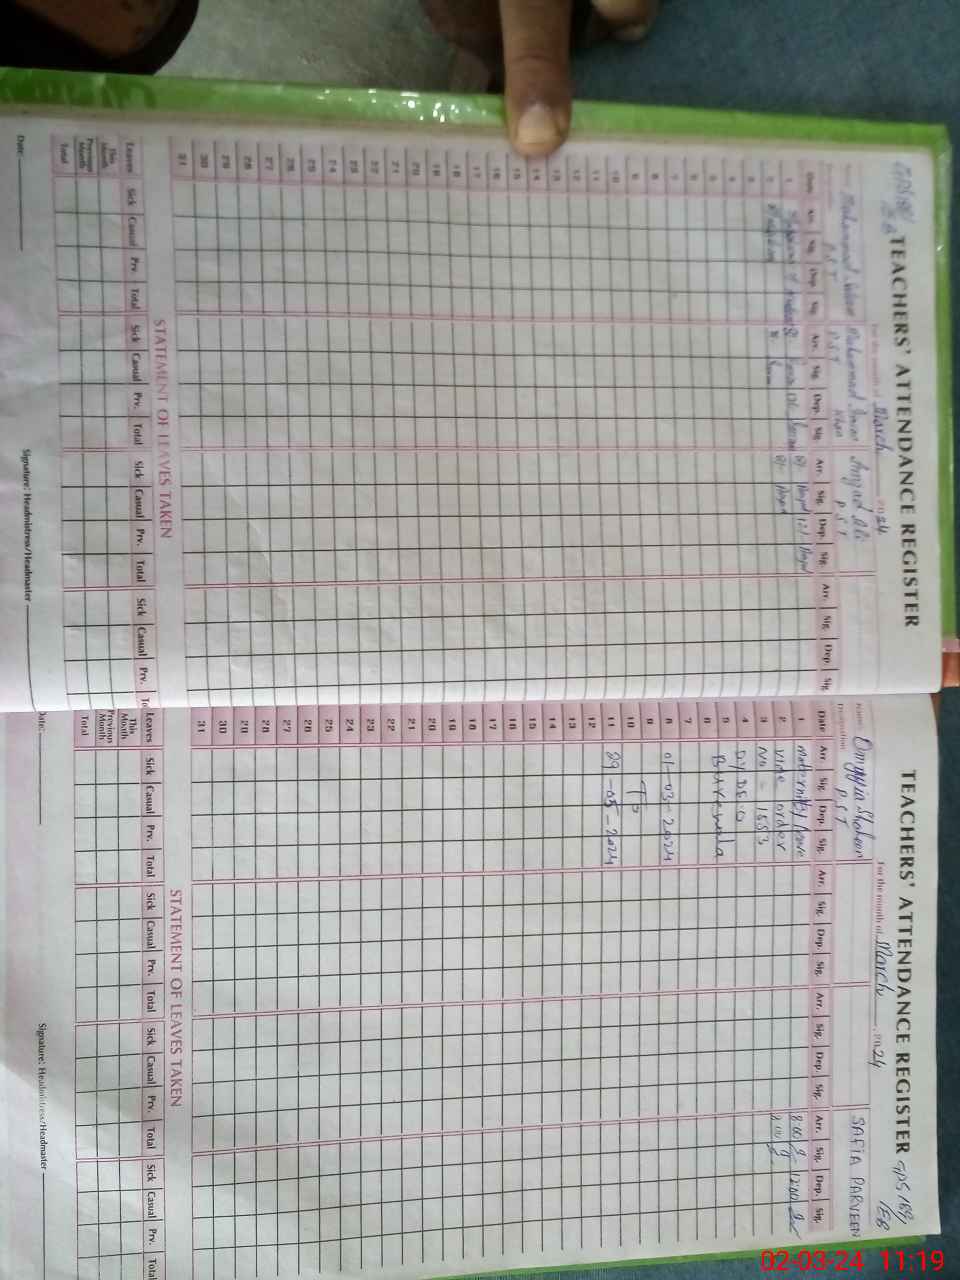 TEACHERS' ATTENDANCE REGISTER
For the month of March 2024
Muhammad
Muhammad Imran Khan
Amjad Ali
P.S.T
P.S.T
P.S.T
Date Arr. Sig. Dep. Sig. Arr. Sig. Dep. Sig. Arr. Sig. Dep. Sig. Arr. Sig. Dep. Sig.
1
2
3
4
5
6
7
8
9
10
11
12
13
14
15
16
17
18
19
20
21
22
23
24
25
26
27
28
29
30
31
STATEMENT OF LEAVES TAKEN
Leaves Sick Casual Prv. Total Sick Casual Prv. Total Sick Casual Prv. Total Sick Casual Prv.
This Month
Previous Month
Total
Date:
Signature: Headmistress/Headmaster
TEACHERS' ATTENDANCE REGISTER GPS 189/EB
For the month of March 2024
Name Shaheen
SAFIA PARVEEN
Designation P.S.T
Date Arr. Sig. Dep. Sig. Arr. Sig. Dep. Sig. Arr. Sig. Dep. Sig. Arr. Sig. Dep. Sig.
1 Maternity leave 8:00 12:00
2 vide order 8:00
3 No - 1553
4 Dy DEO
5 Burewala
6
7
8 01-03-2024
9
10 To
11 29-05-2024
12
13
14
15
16
17
18
19
20
21
22
23
24
25
26
27
28
29
30
31
STATEMENT OF LEAVES TAKEN
Leaves Sick Casual Prv. Total Sick Casual Prv. Total Sick Casual Prv. Total Sick Casual Prv. Total
This Month
Previous Month
Total
Date:
Signature: Headmistress/Headmaster
02-03-24 11:19